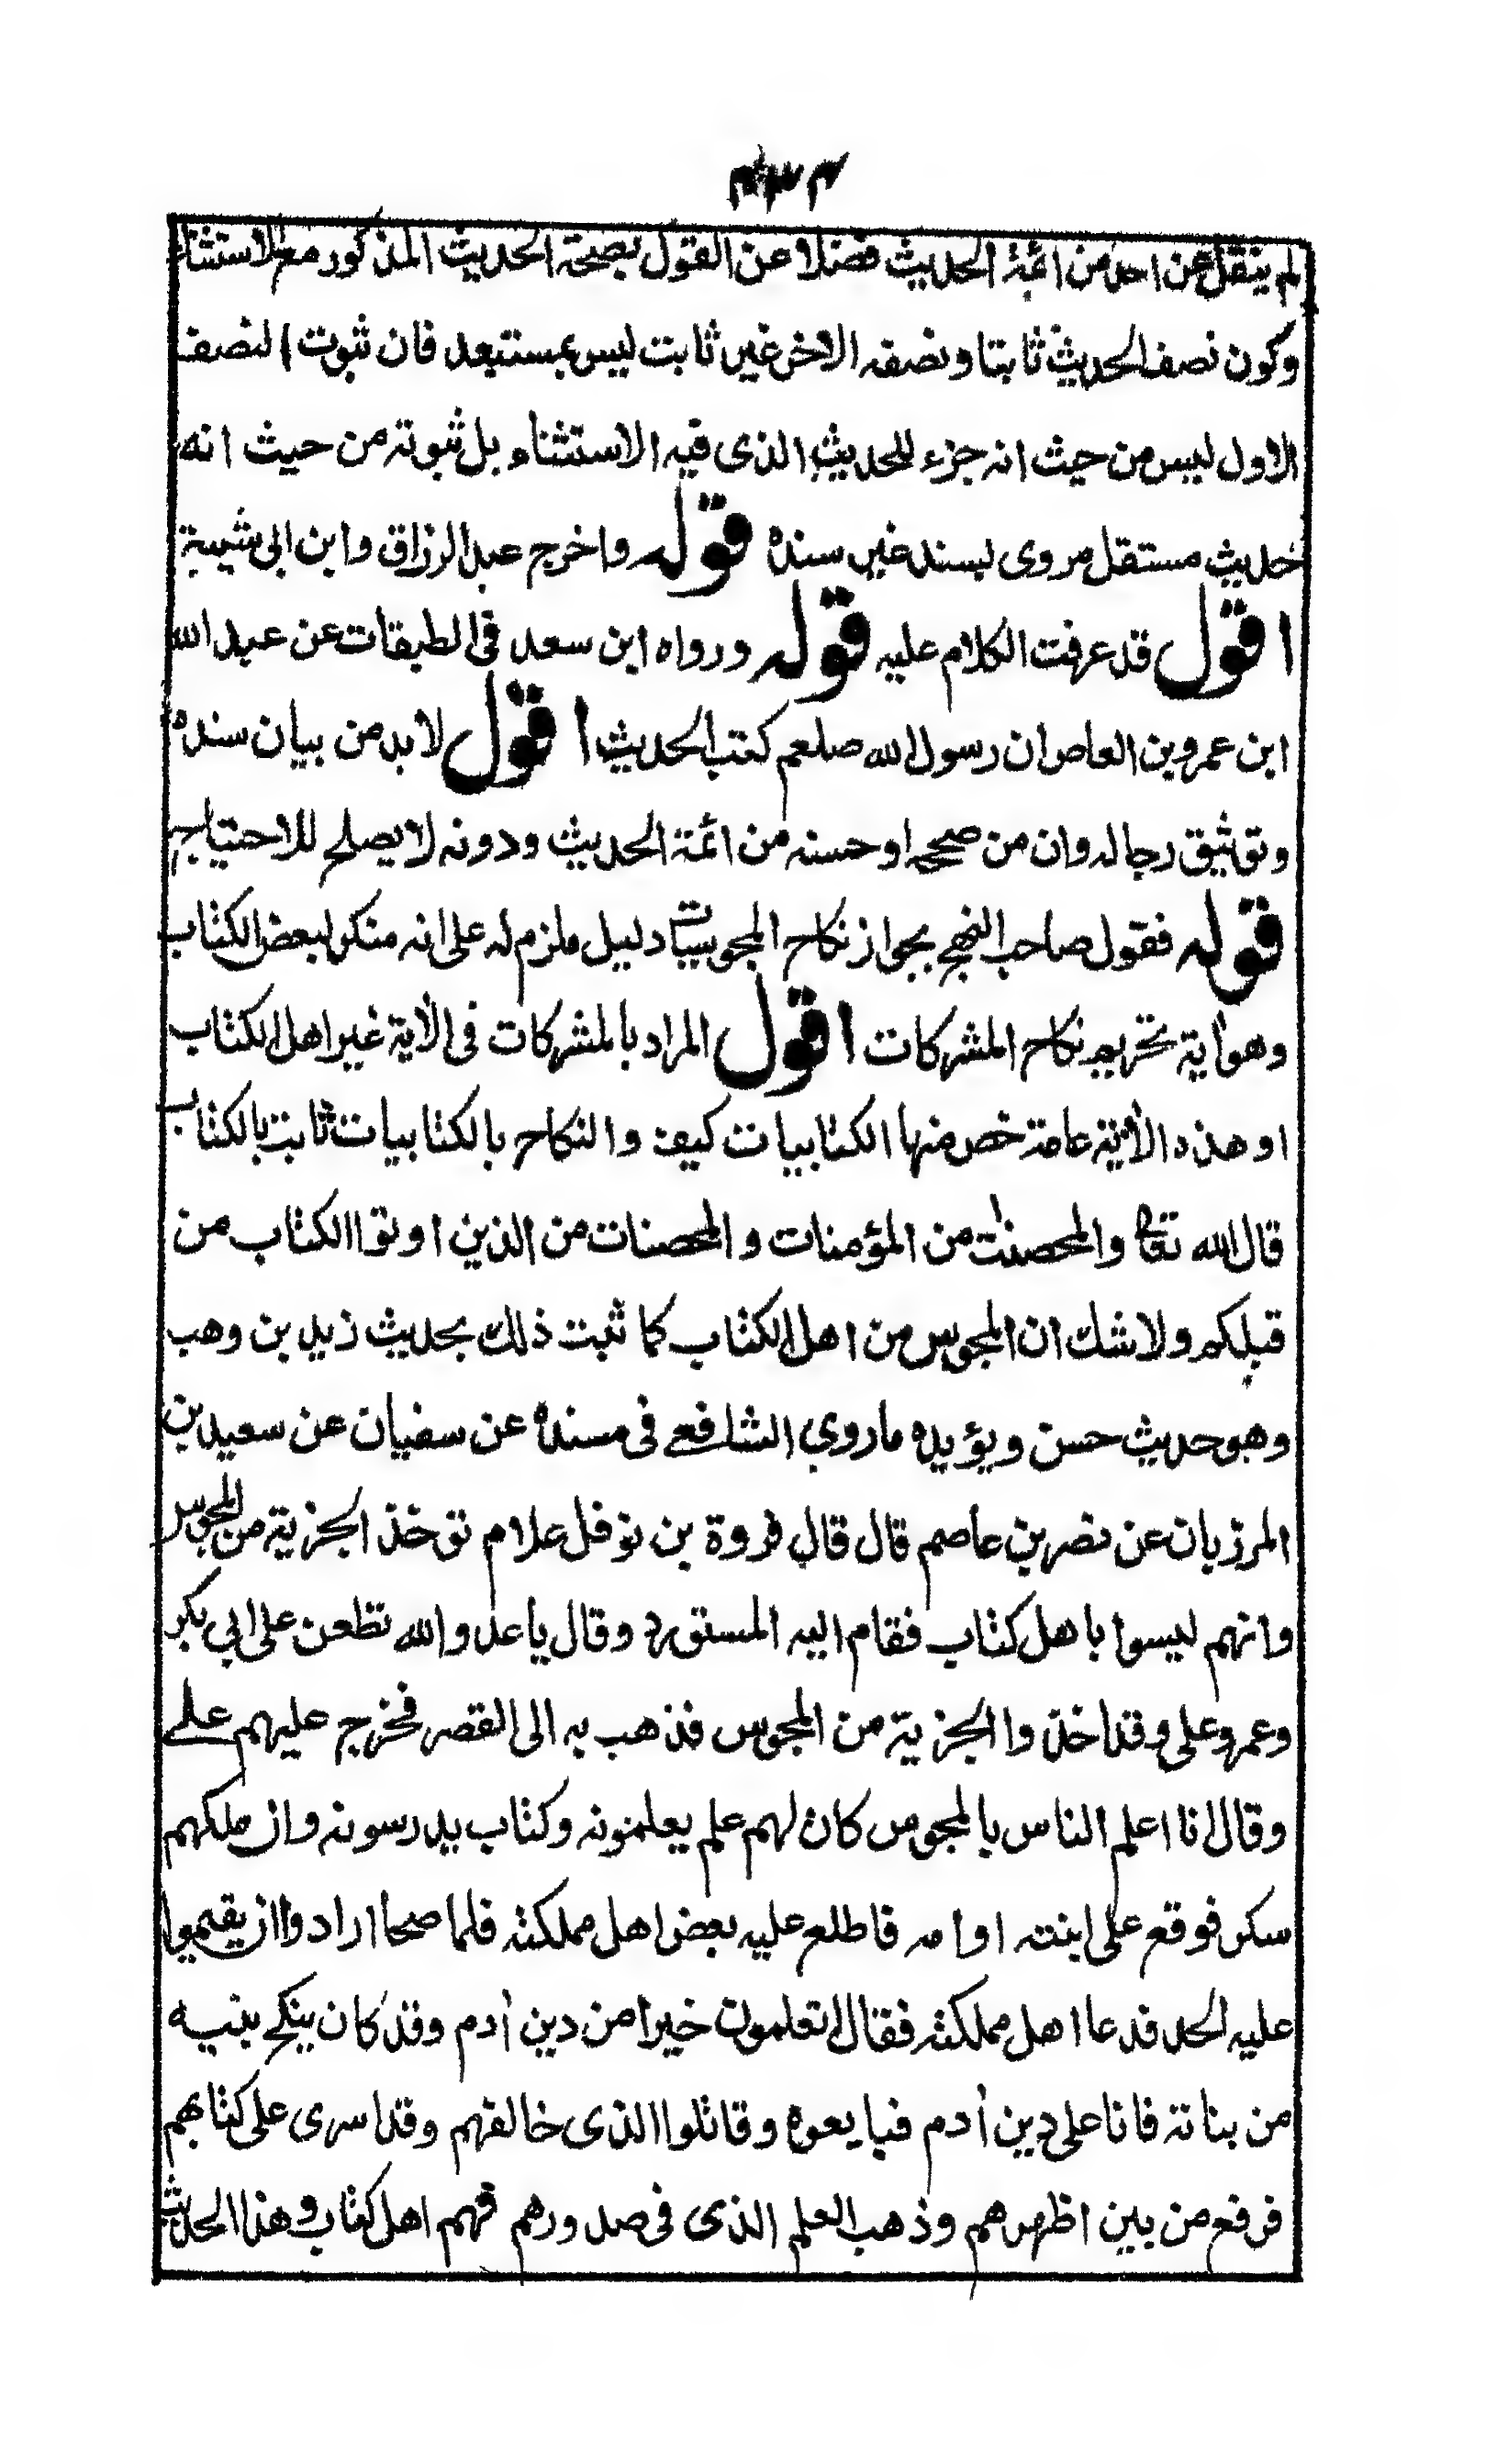 لم ينقل عن احد من ائمة الحديث فضلا عن القول بصحة الحديث المذكور مع الاستثناء
وكون نصف الحديث ثابتا ونصفه الاخر غير ثابت ليس بمستبعد فان ثبوت النصف
الاول ليس من حيث انه جزء للحديث الذى فيه الاستثناء بل ثبوته من حيث انه
حديث مستقل مروى بسند غير سنده قوله واخرج عبد الرزاق وابن ابى شيبة
اقول قد عرفت الكلام عليه قوله ورواه ابن سعد فى الطبقات عن عبد الله
ابن عمرو بن العاص ان رسول الله صلعم كتب الحديث اقول لابد من بيان سنده
وتوثيق رجاله وان من صححه او حسنه من ائمة الحديث ودونه لا يصلح للاحتياج
قوله فقول صاحب النهج بجواز نكاح المجوسيات دليل ملزم له على انه منكر لبعض الكتاب
وهو اٰية تحريم نكاح المشركات اقول المراد بالمشركات فى الاٰية غير اهل الكتاب
او هذه الاٰية عامة خص منها الكتابيات كيف والنكاح بالكتابيات ثابت بالكتاب
قال الله تعا والمحصنٰت من المؤمنات والمحصنات من الذين اوتوا الكتاب من
قبلكم ولا شك ان المجوس من اهل الكتاب كما ثبت ذلك بحديث زيد بن وهب
وهو حديث حسن ويؤيده ما روي الشافعے فى مسنده عن سفيان عن سعيد بن
المرزبان عن نصر بن عاصم قال قال فروة بن نوفل علام تؤخذ الجزية من المجوس
وانهم ليسوا باهل كتاب فقام اليه المستورد وقال يا عدو الله تطعن على ابي بكر
وعمر وعلى وقد اخذوا الجزية من المجوس فذهب به الى القصر فخرج عليهم علے
وقال انا اعلم الناس بالمجوس كان لهم علم يعلمونه وكتاب يدرسونه وان ملكهم
سكر فوقع على ابنته او امه فاطلع عليه بعض اهل مملكته فلما صحا ارادوا ان يقيموا
عليه الحد فدعا اهل مملكته فقال اتعلمون خيرا من دين اٰدم وقد كان ينكح بنيه
من بناته فانا على دين اٰدم فبايعوه وقاتلوا الذى خالفهم وقد اسرى على كتابهم
فرفع من بين اظهرهم وذهب العلم الذى فى صدورهم فهم اهل كتاب وهذا الحديث